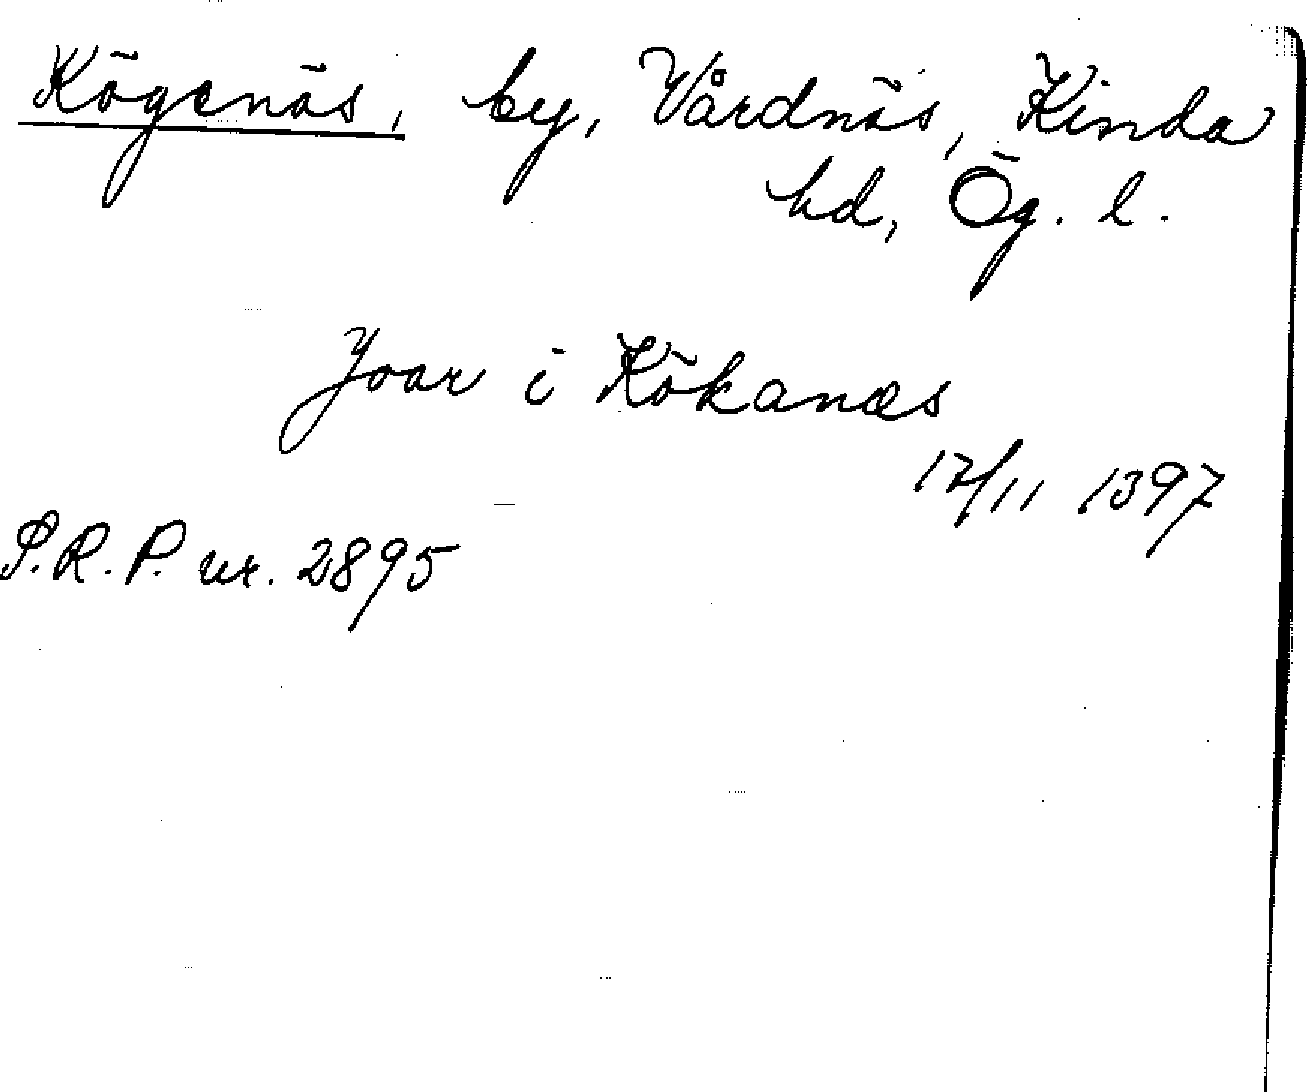 Kögenäs, by, Vårdnäs, Kinda
hd, Ög. l.
Joar i Kökanæs
12/11 1397
S.R.P. nr. 2895